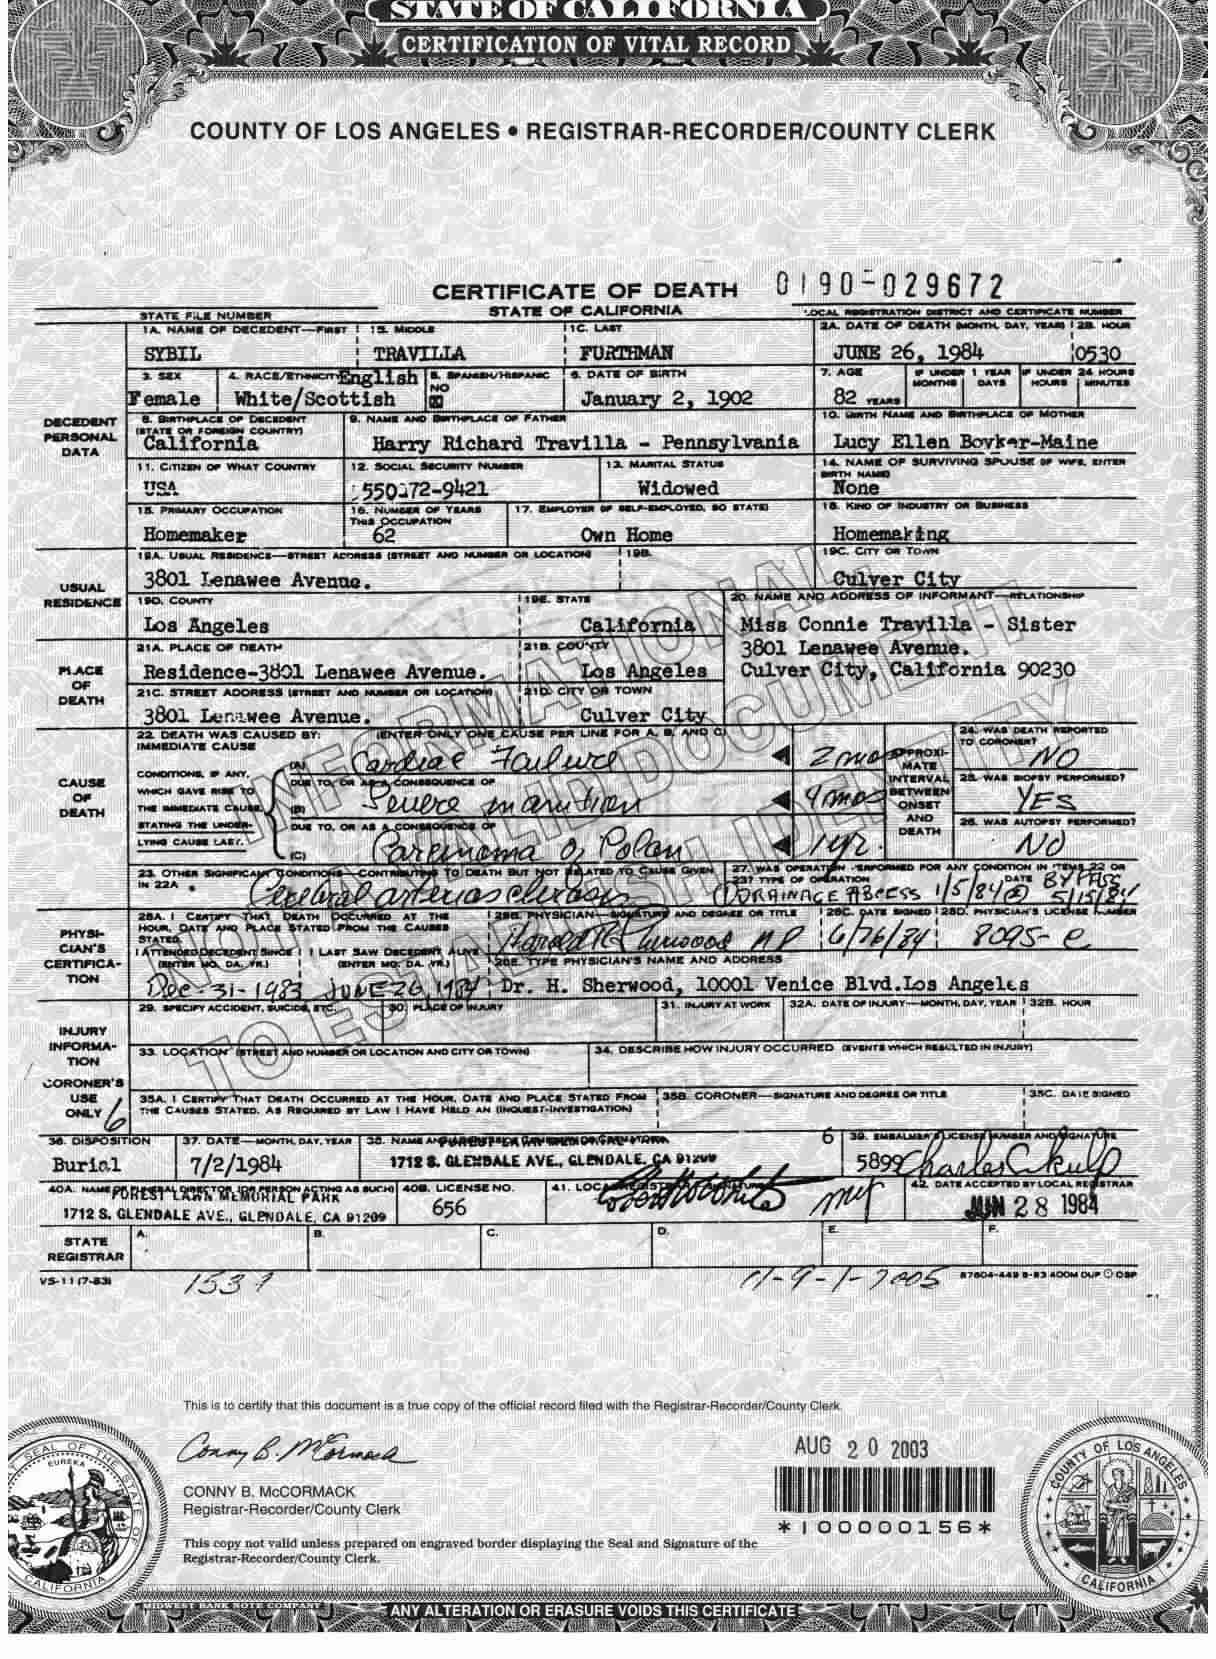 STATE OF CALIFORNIA
CERTIFICATION OF VITAL RECORD
COUNTY OF LOS ANGELES • REGISTRAR-RECORDER/COUNTY CLERK
CERTIFICATE OF DEATH 0190-029672
STATE OF CALIFORNIA
STATE FILE NUMBER LOCAL REGISTRATION DISTRICT AND CERTIFICATE NUMBER
1A. NAME OF DECEDENT—FIRST 1B. MIDDLE 1C. LAST 2A. DATE OF DEATH (MONTH, DAY, YEAR) 2B. HOUR
SYBIL TRAVILLA FURTHMAN JUNE 26, 1984 0530
3. SEX 4. RACE/ETHNICITY English 5. SPANISH/HISPANIC 6. DATE OF BIRTH 7. AGE IF UNDER 1 YEAR IF UNDER 24 HOURS
MONTHS DAYS HOURS MINUTES
Female White/Scottish NO January 2, 1902 82 YEARS
DECEDENT PERSONAL DATA
8. BIRTHPLACE OF DECEDENT (STATE OR FOREIGN COUNTRY) 9. NAME AND BIRTHPLACE OF FATHER 10. BIRTH NAME AND BIRTHPLACE OF MOTHER
California Harry Richard Travilla - Pennsylvania Lucy Ellen -Maine
11. CITIZEN OF WHAT COUNTRY 12. SOCIAL SECURITY NUMBER 13. MARITAL STATUS 14. NAME OF SURVIVING SPOUSE (IF WIFE, ENTER BIRTH NAME)
USA 550-72-9421 Widowed None
15. PRIMARY OCCUPATION 16. NUMBER OF YEARS THIS OCCUPATION 17. EMPLOYER (IF SELF-EMPLOYED, SO STATE) 18. KIND OF INDUSTRY OR BUSINESS
Homemaker 62 Own Home Homemaking
USUAL RESIDENCE
19A. USUAL RESIDENCE—STREET ADDRESS (STREET AND NUMBER OR LOCATION) 19B. 19C. CITY OR TOWN
3801 Lenawee Avenue. Culver City
19D. COUNTY 19E. STATE 20. NAME AND ADDRESS OF INFORMANT—RELATIONSHIP
Los Angeles California Miss Connie Travilla - Sister
3801 Lenawee Avenue.
Culver City, California 90230
PLACE OF DEATH
21A. PLACE OF DEATH 21B. COUNTY
Residence-3801 Lenawee Avenue. Los Angeles
21C. STREET ADDRESS (STREET AND NUMBER OR LOCATION) 21D. CITY OR TOWN
3801 Lenawee Avenue. Culver City
CAUSE OF DEATH
22. DEATH WAS CAUSED BY: (ENTER ONLY ONE CAUSE PER LINE FOR A, B, AND C)
IMMEDIATE CAUSE
(A) Cardiac Failure 2 mos
CONDITIONS, IF ANY, WHICH GAVE RISE TO THE IMMEDIATE CAUSE, STATING THE UNDERLYING CAUSE LAST.
DUE TO, OR AS A CONSEQUENCE OF
(B) Severe inanition 4 mos
DUE TO, OR AS A CONSEQUENCE OF
(C) Carcinoma of Colon 1 yr.
APPROXIMATE INTERVAL BETWEEN ONSET AND DEATH
24. WAS DEATH REPORTED TO CORONER?
NO
25. WAS BIOPSY PERFORMED?
YES
26. WAS AUTOPSY PERFORMED?
NO
23. OTHER SIGNIFICANT CONDITIONS—CONTRIBUTING TO DEATH BUT NOT RELATED TO CAUSE GIVEN IN 22A
Cerebral arteriosclerosis
27. WAS OPERATION PERFORMED FOR ANY CONDITION IN ITEMS 22 OR 23? TYPE OF OPERATION DATE
DRAINAGE ABCESS 1/5/84 5/15/84
PHYSICIAN'S CERTIFICATION
28A. I CERTIFY THAT DEATH OCCURRED AT THE HOUR, DATE AND PLACE STATED FROM THE CAUSES STATED.
28B. PHYSICIAN—SIGNATURE AND DEGREE OR TITLE 28C. DATE SIGNED 28D. PHYSICIAN'S LICENSE NUMBER
Harold R. Sherwood MD 6/26/84 8095-C
I ATTENDED DECEDENT SINCE (ENTER MO. DA. YR.) I LAST SAW DECEDENT ALIVE (ENTER MO. DA. YR.) 28E. TYPE PHYSICIAN'S NAME AND ADDRESS
Dec-31-1983 JUNE 26, 1984 Dr. H. Sherwood, 10001 Venice Blvd.Los Angeles
INJURY INFORMATION
29. SPECIFY ACCIDENT, SUICIDE, ETC. 30. PLACE OF INJURY 31. INJURY AT WORK 32A. DATE OF INJURY—MONTH, DAY, YEAR 32B. HOUR
33. LOCATION (STREET AND NUMBER OR LOCATION AND CITY OR TOWN) 34. DESCRIBE HOW INJURY OCCURRED (EVENTS WHICH RESULTED IN INJURY)
CORONER'S USE ONLY 6
35A. I CERTIFY THAT DEATH OCCURRED AT THE HOUR, DATE AND PLACE STATED FROM THE CAUSES STATED, AS REQUIRED BY LAW I HAVE HELD AN (INQUEST-INVESTIGATION) 35B. CORONER—SIGNATURE AND DEGREE OR TITLE 35C. DATE SIGNED
36. DISPOSITION 37. DATE—MONTH, DAY, YEAR 38. NAME AND 6 39. EMBALMER'S LICENSE NUMBER AND SIGNATURE
Burial 7/2/1984 1712 S. GLENDALE AVE., GLENDALE, CA 91209 5899 Charles C. Kulp
40A. NAME OF FUNERAL DIRECTOR (OR PERSON ACTING AS SUCH) 40B. LICENSE NO. 41. LOCAL REGISTRAR—SIGNATURE 42. DATE ACCEPTED BY LOCAL REGISTRAR
FOREST LAWN MEMORIAL PARK
1712 S. GLENDALE AVE., GLENDALE, CA 91209 656 JUN 28 1984
STATE REGISTRAR A. B. C. D. E. F.
VS-11 (7-83) 1537 11-9-1-7005 87604-449 8-83 400M DUP OSP
INFORMATIONAL,
NOT A VALID DOCUMENT
TO ESTABLISH IDENTITY
This is to certify that this document is a true copy of the official record filed with the Registrar-Recorder/County Clerk.
Conny B. McCormack
AUG 20 2003
CONNY B. McCORMACK
Registrar-Recorder/County Clerk
*100000156*
This copy not valid unless prepared on engraved border displaying the Seal and Signature of the
Registrar-Recorder/County Clerk.
SEAL OF THE STATE OF CALIFORNIA
EUREKA
COUNTY OF LOS ANGELES
CALIFORNIA
MIDWEST BANK NOTE COMPANY
ANY ALTERATION OR ERASURE VOIDS THIS CERTIFICATE